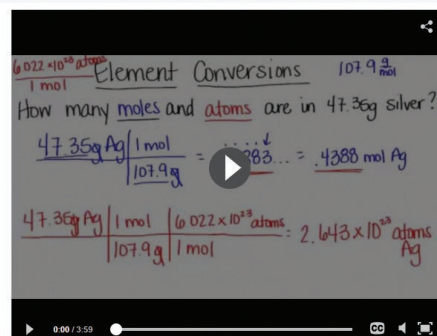 6.022 x 10²³ atoms
1 mol
Element Conversions
107.9 g/mol
How many moles and atoms are in 47.35g silver?
47.35g Ag | 1 mol = 383... = .4388 mol Ag
107.9g
47.35g Ag | 1 mol | 6.022 x 10²³ atoms = 2.643 x 10²³ atoms
107.9g | 1 mol Ag
0:00 / 3:59
CC